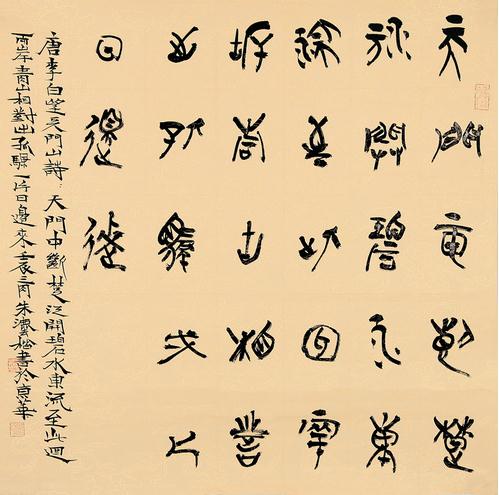 天門中斷楚
江開碧水東
流至此回兩
岸青山相對
出孤帆一片
日邊來
唐李白望天門山詩：天門中斷楚江開碧水東流至此迴
兩岸青山相對出孤颿一片日邊來壬辰三月朱松書於京華